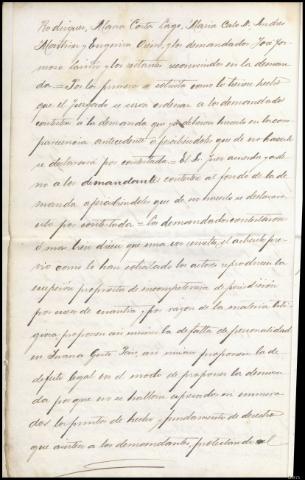 Rodríguez, María Costa Lago, María Calo D. Andrés
Martínez y Eugenia Oreiro, y los demandados José for-
moso Liñeiro y los restantes reconvenidos en la deman-
da = Por los primeros se solicita como lo tienen hecho
que el juzgado se sirva ordenar a los demandados
contesten a la demanda, que ya debieran hacerlo en la com-
parecencia antecedente apercibiéndoles que de no hacerlo
se declarará por contestada = El Sr. Juez acuerda y orde-
na a los demandantes contestar al fondo de la de-
manda apercibiéndoles que de no hacerlo se declarará
esto por contestada = Los demandados contestaron
o mas bien dicen que una vez resuelto, el artículo pre-
vio como lo han solicitado los actores reproducen la
excepción propuesta de incompetencia de jurisdicción
por exceso de cuantía, y por razon de la materia liti-
giosa, proponen asi mismo la de falta de personalidad
en Juana Gesto Pose, asi mismo proponen la de
defecto legal en el modo de proponer la deman-
da porque no se hallan espresados en numera-
dos los puntos de hecho y fundamentos de derecho
que asisten a los demandantes, protestando el